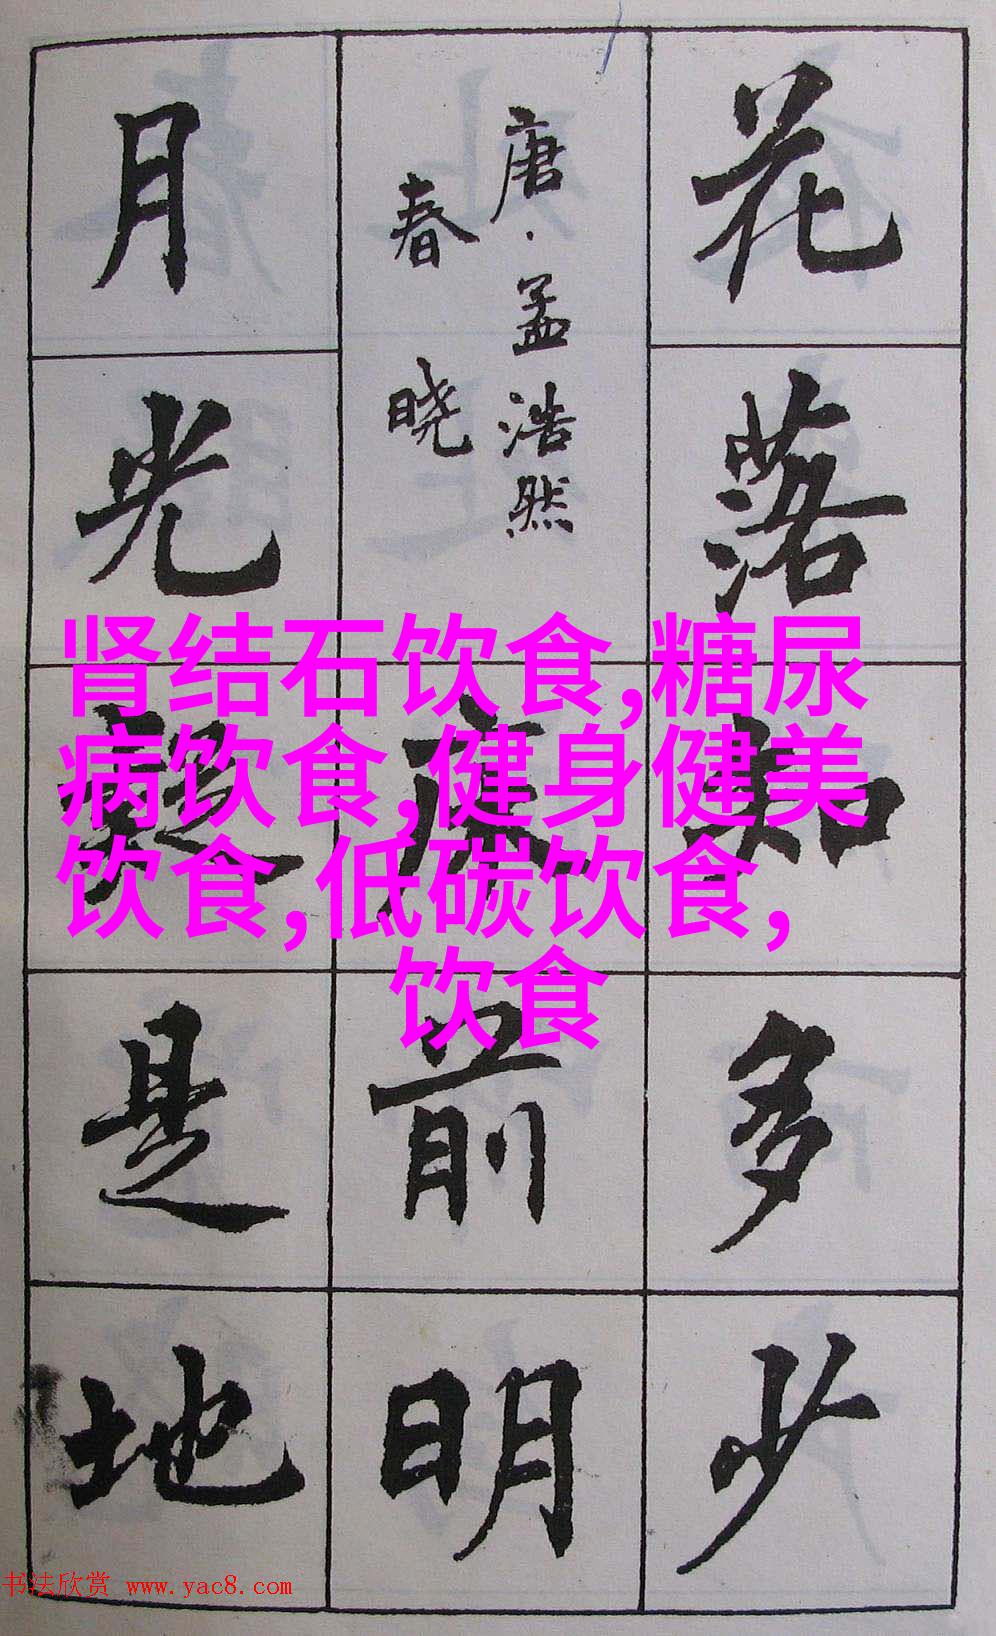 花落知多少
唐·孟浩然
春晓
床前明
月光疑是地
肾结石饮食,糖尿
病饮食,健身健美
饮食,低碳饮食,
饮食
书法欣赏 www.yac8.com